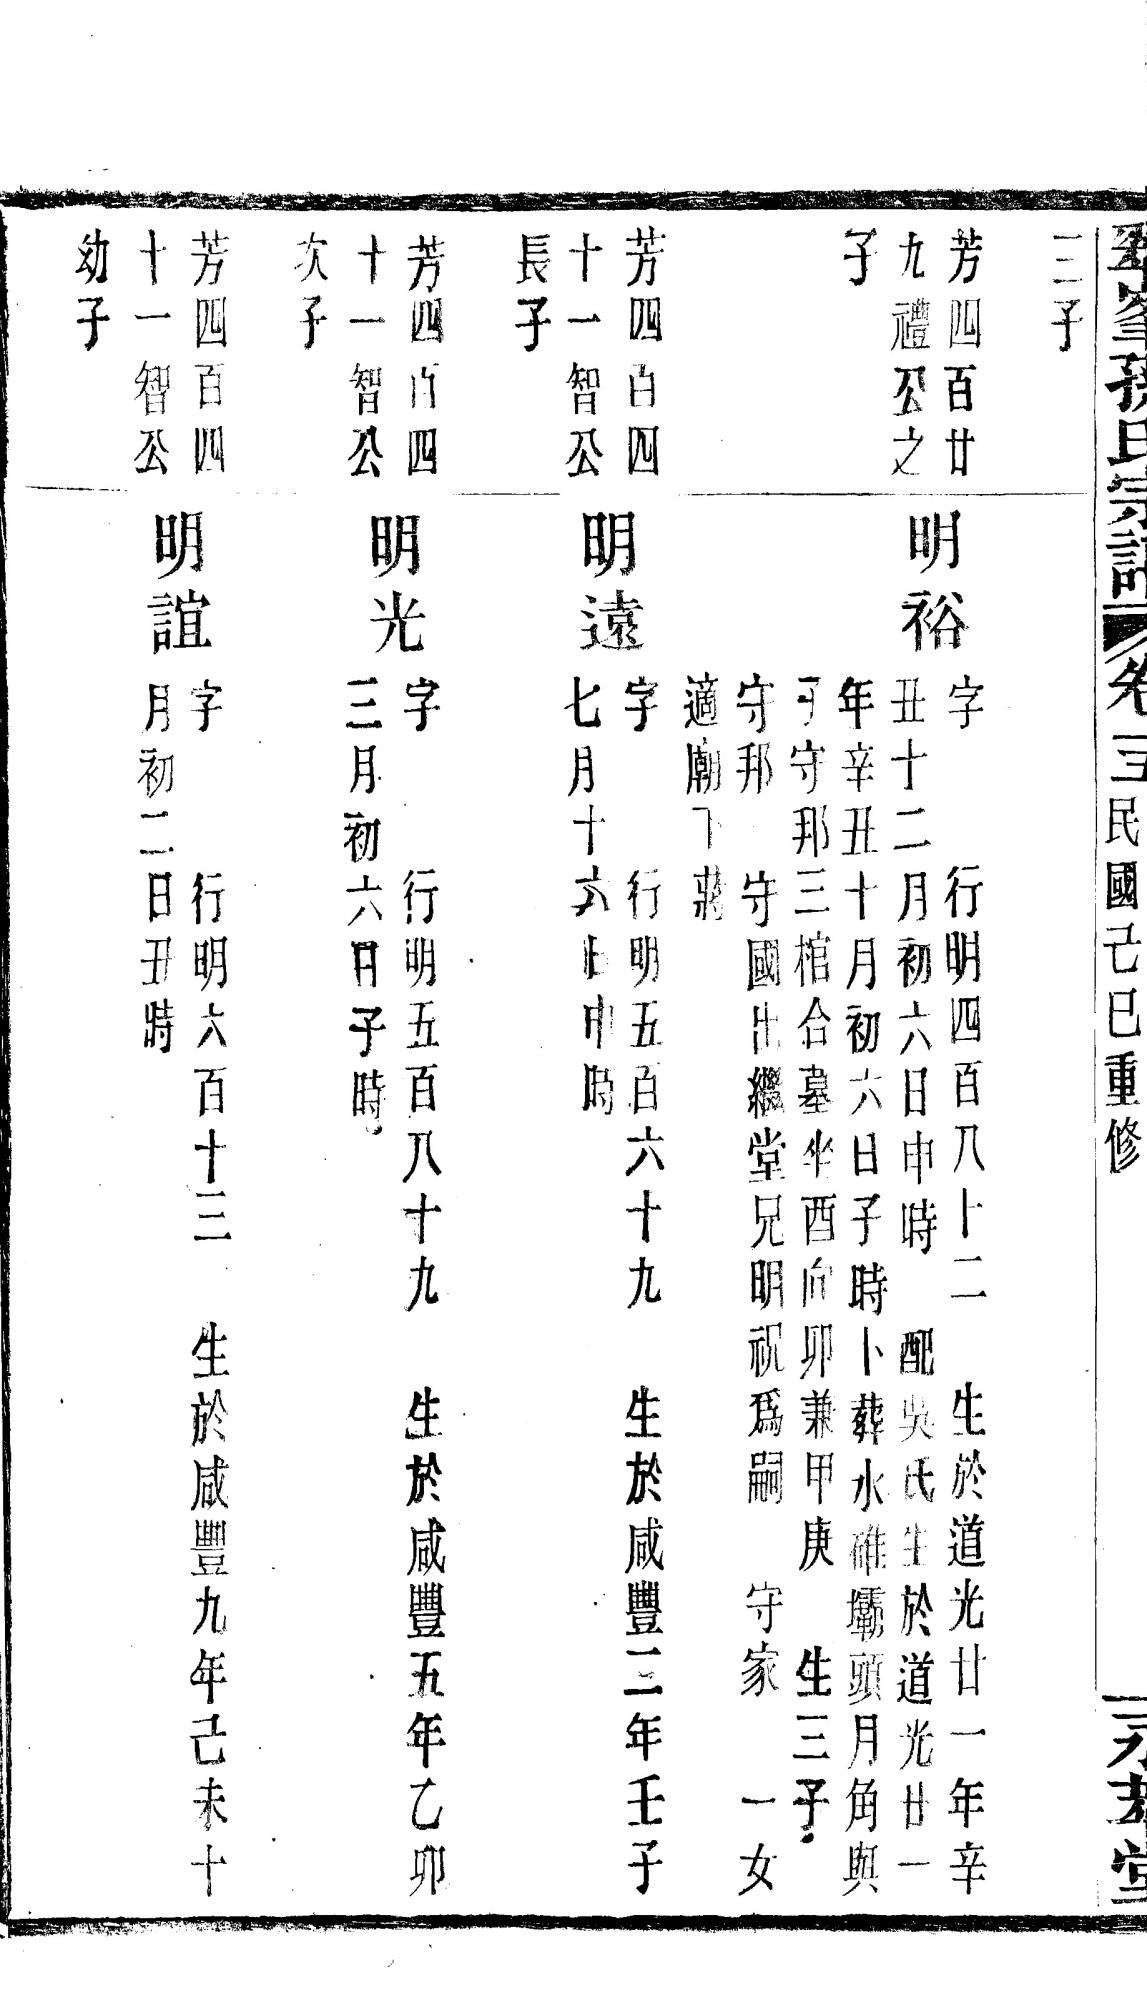 峯孫氏宗譜
卷三
民國己巳重修
堂
三子
芳四百廿
九禮公之
子
明裕
字　行明四百八十二　生於道光廿一年辛
丑十二月初六日申時　配吳氏生於道光廿一
年辛丑十月初六日子時卜葬水碓壩頭月角與
子守邦三棺合墓坐酉向卯兼甲庚　生三子
守邦　守國出繼堂兄明祝爲嗣　守家　一女
適廟下蔣
芳四百四
十一智公
長子
明遠
字　行明五百六十九　生於咸豐二年壬子
七月十六日申時
芳四百四
十一智公
次子
明光
字　行明五百八十九　生於咸豐五年乙卯
三月初六日子時
芳四百四
十一智公
幼子
明誼
字　行明六百十三　生於咸豐九年己未十
月初二日丑時